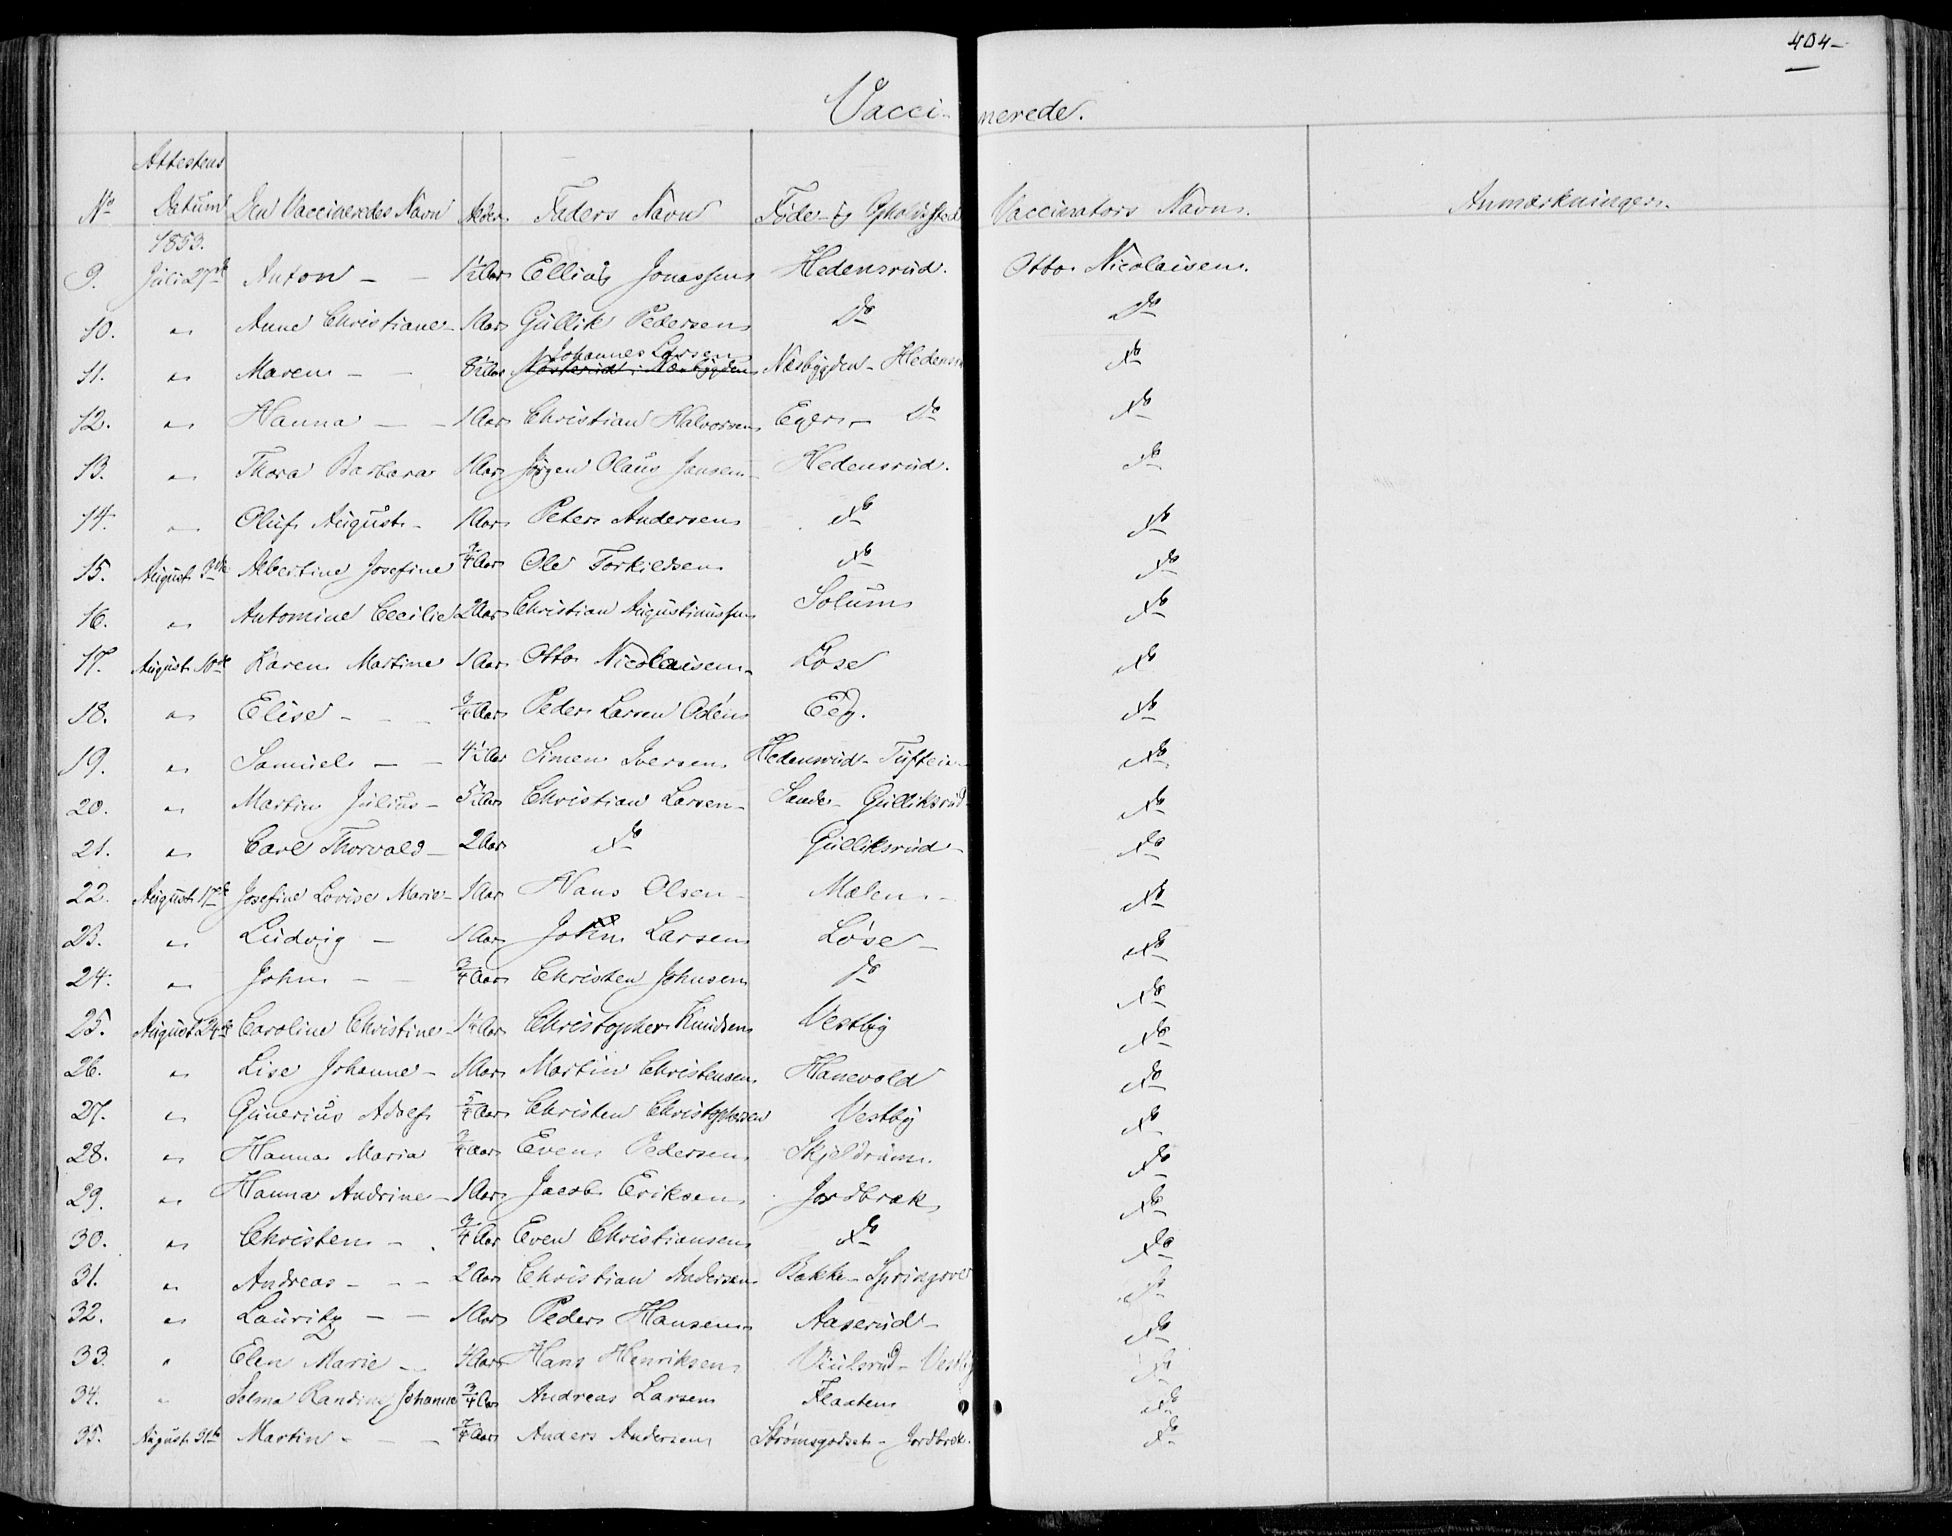 404-
Vaccinerede.
No Attestens Datum Den Vaccineredes Navn Alder Faders Navn Føde- og Opholdssted Vaccinators Navn. Anmærkninger.
1853.
9. Juli 27de Anton - - 1½ Aar Ellias Jonassen Hedensrud. Otto Nicolaisen.
10. " Anne Christiane 1 Aar Gullik Pedersen Do Do
11. " Maren - - 8½ Aar Johannes Larsen Næsbygden - Do
12. " Hanna - - 1 Aar Christian Halvorsen Eger - Do Do
13. " Thora Barbara 1 Aar Jørgen Olaus Jansen Hedensrud. Do
14. " Oluf August - 1 Aar Peter Andersen Do Do
15. August 3de Albertine Josefine ¾ Aar Ole Torkildsen Do Do
16. " Antomine Cecilie 2 Aar Christian Augustinussen Solum Do
17. August 10de Karen Martine 1 Aar Otto Nicolaisen - Løse Do
18. " Elise - - ¾ Aar Peder Larsen Odén Eeg. Do
19. " Samuel - - 4½ Aar Simen Iversen Hedensrud - Do
20. " Martin Julius - Christian Larsen - Sande - Gulliksrud - Do
21. " Carl Thorvald - 2 Aar Do Gulliksrud - Do
22. August 17de Josefine Lovise Marie - 1 Aar Hans Olsen - Mælen - Do
23. " Ludvig - 1 Aar John Larsen Løse - Do
24. " John - - ¾ Aar Christen Johnsen Do Do
25. August 24de Caroline Christine - Christopher Knudsen Vestby Do
26. " Lise Johanne - 1 Aar Martin Christensen Hanevold Do
27. " Gunerius Adolf 5/4 Aar Christen Christophersen Vestby Do
28. " Hanna Maria Aar Even Pedersen Skjeldrum. Do
29. " Hanna Andrine - 1 Aar Jacob Eriksen Jordbræk Do
30. " Christen - ¾ Aar Even Christiansen Do Do
31. " Andreas - - 2 Aar Christian Andersen Bakke - Do
32. " Lauritz - - 1 Aar Peder Hansen Aaserud - Do
33. " Elen Marie - 4 Aar Hans Henriksen - Vestby Do
34. " Selma Randine Johanne ¾ Aar Andreas Larsen Flaaten Do
35. August 31te Martin - - Aar Anders Andersen Strømsgodset - Jordbræk. Do